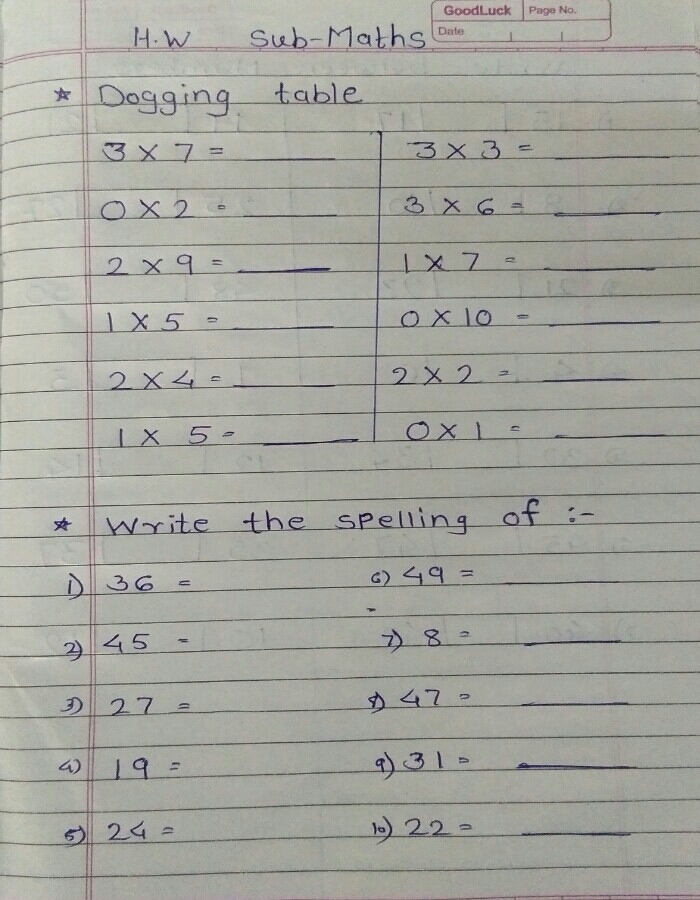 GoodLuck Page No.
Date
H.W Sub-Maths
* Dogging table
3 × 7 = ____ 3 × 3 = ____
0 × 2 = ____ 3 × 6 = ____
2 × 9 = ____ 1 × 7 = ____
1 × 5 = ____ 0 × 10 = ____
2 × 4 = ____ 2 × 2 = ____
1 × 5 = ____ 0 × 1 = ____
* Write the spelling of :-
1) 36 = 6) 49 = ____
2) 45 = 7) 8 = ____
3) 27 = 8) 47 = ____
4) 19 = 9) 31 = ____
5) 24 = 10) 22 = ____